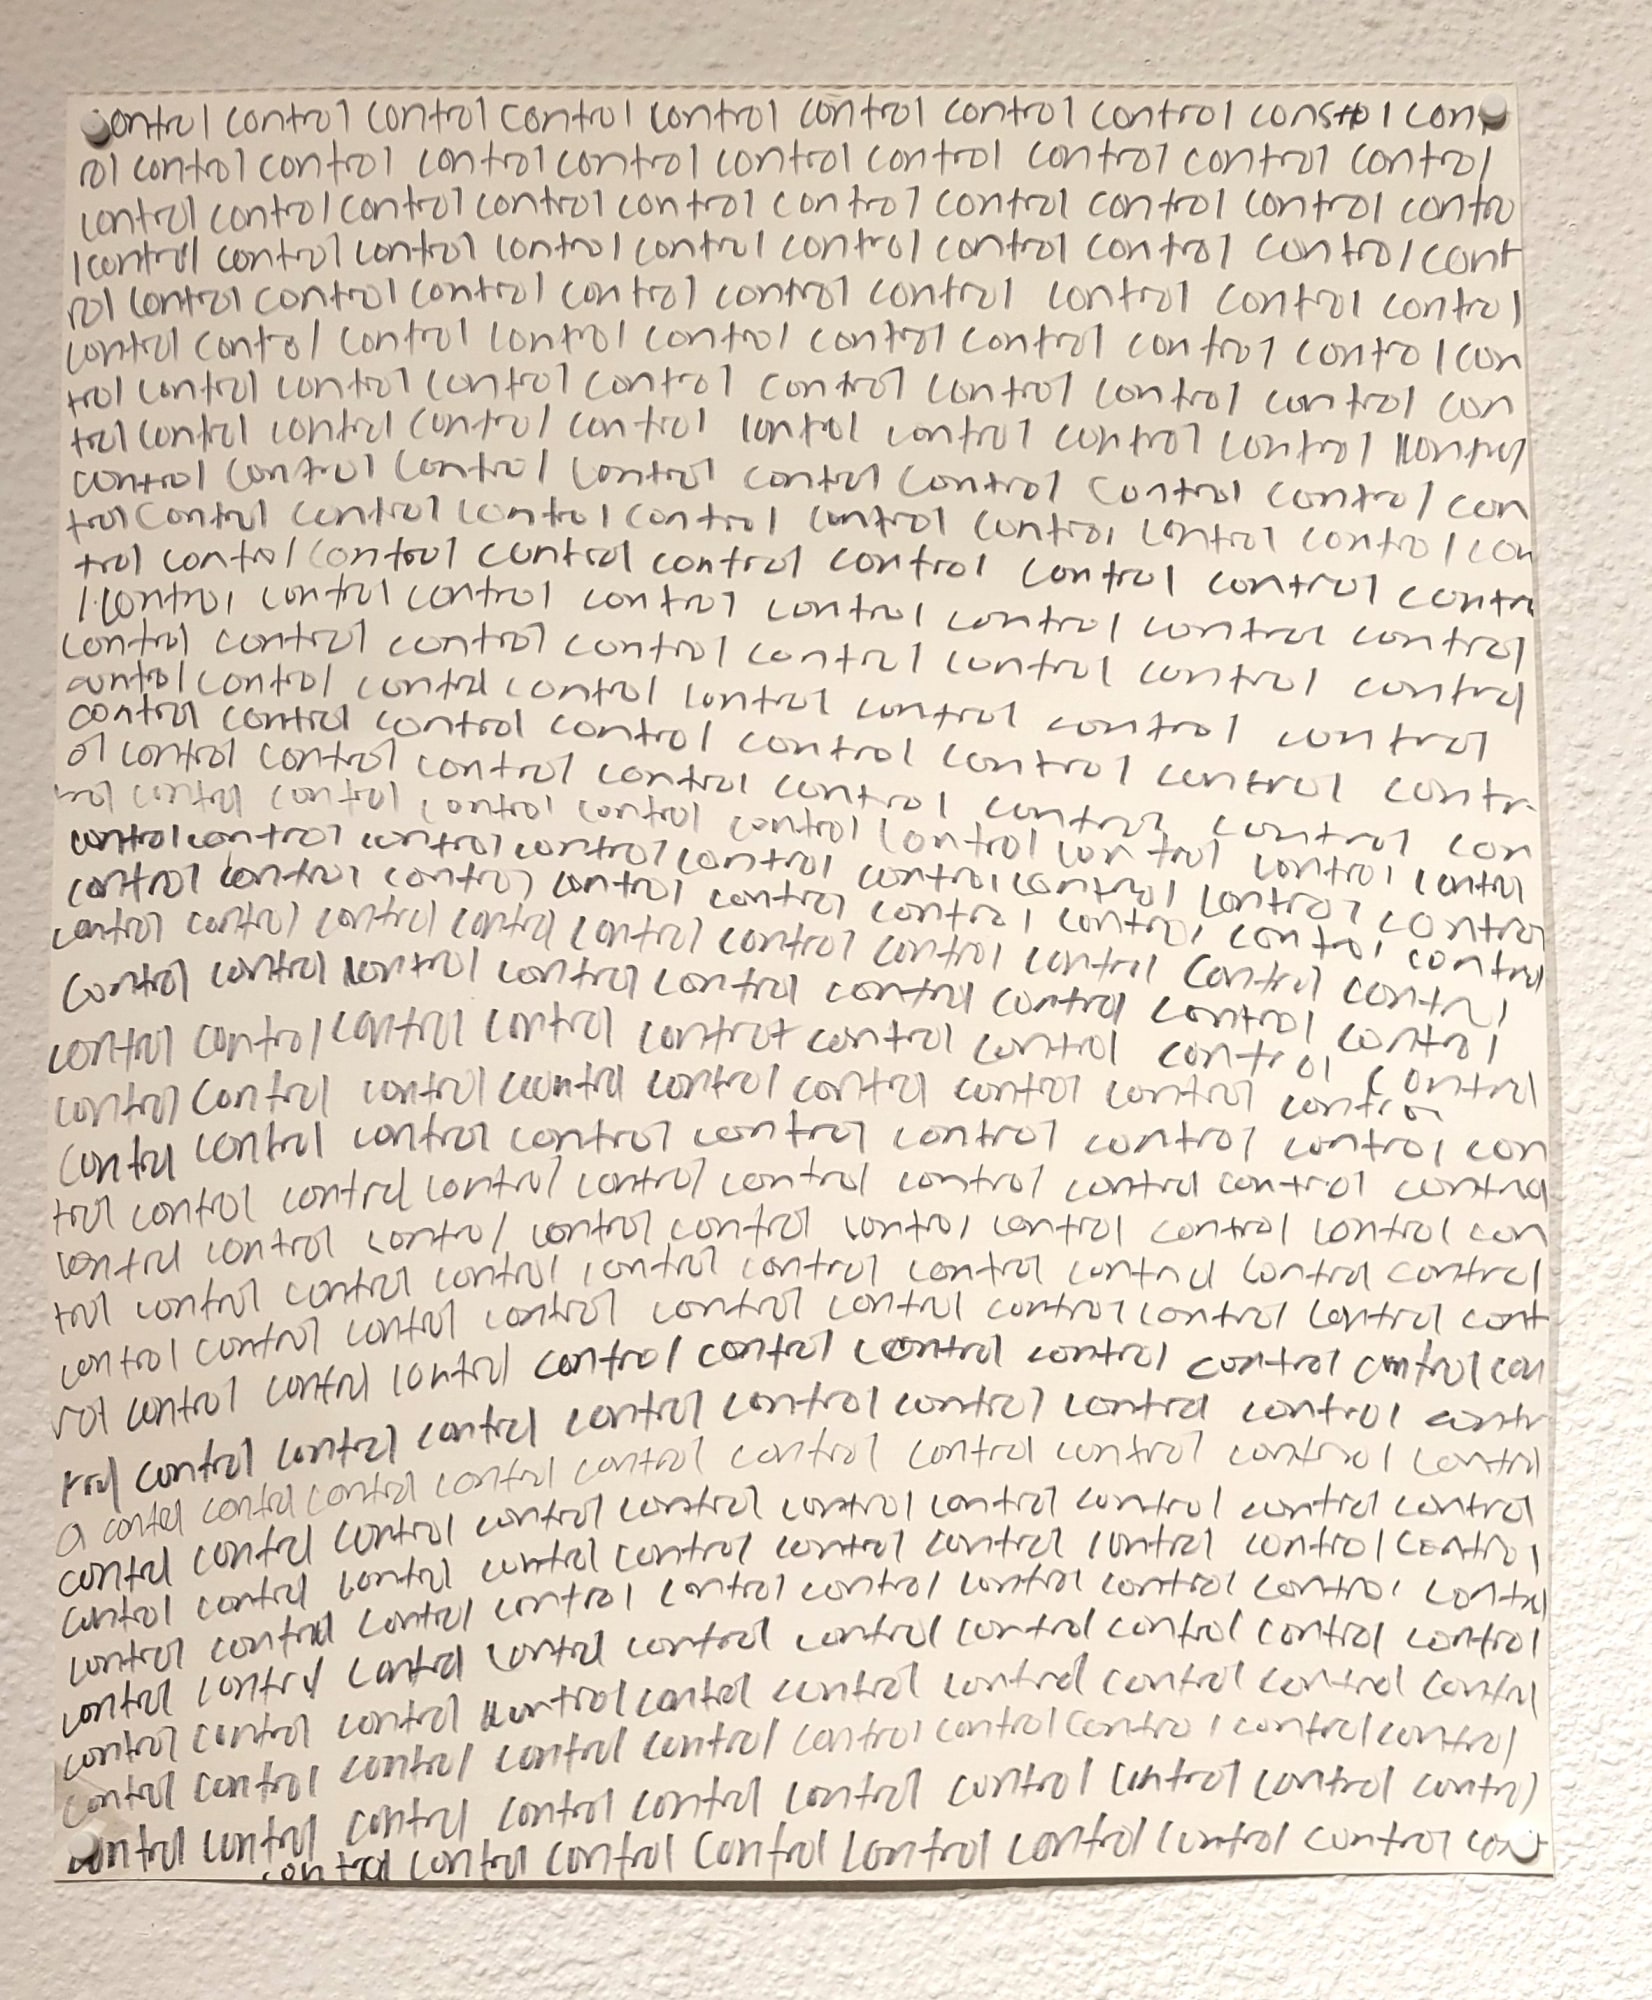 control control control control control control control control constrol con
rol control control control control control control control control control
control control control control control control control control control contro
lcontrol control control control control control control control control cont
rol control control control control control control control control control
control control control control control control control control control con
trol control control control control control control control control con
trol control control control control control control control control kontrol
control control control control control control control control con
trol control control control control control control control control con
trol control control control control control control control contro
l control control control control control control control control
control control control control control control control control
control control control control control control control control
control control control control control control control contr
ol control control control control control control control con
trol control control control control control control control control control
control control control control control control control control control
control control control control control control control control control
control control control control control control control control control control
control control control control control control control control control
control control control control control control control control control
control control control control control control control control contro
control control control control control control control control con
trol control control control control control control control control control
control control control control control control control control control con
trol control control control control control control control control control
control control control control control control control control control cont
rol control control control control control control control control control con
trol control control control control control control control control contr
a control control control control control control control control control control
control control control control control control control control control control
control control control control control control control control control control
control control control control control control control control control control
control control control control control control control control control control
control control control control control control control control control control
control control control control control control control control control control
control control control control control control control control control control
control control control control control control control control control con
control